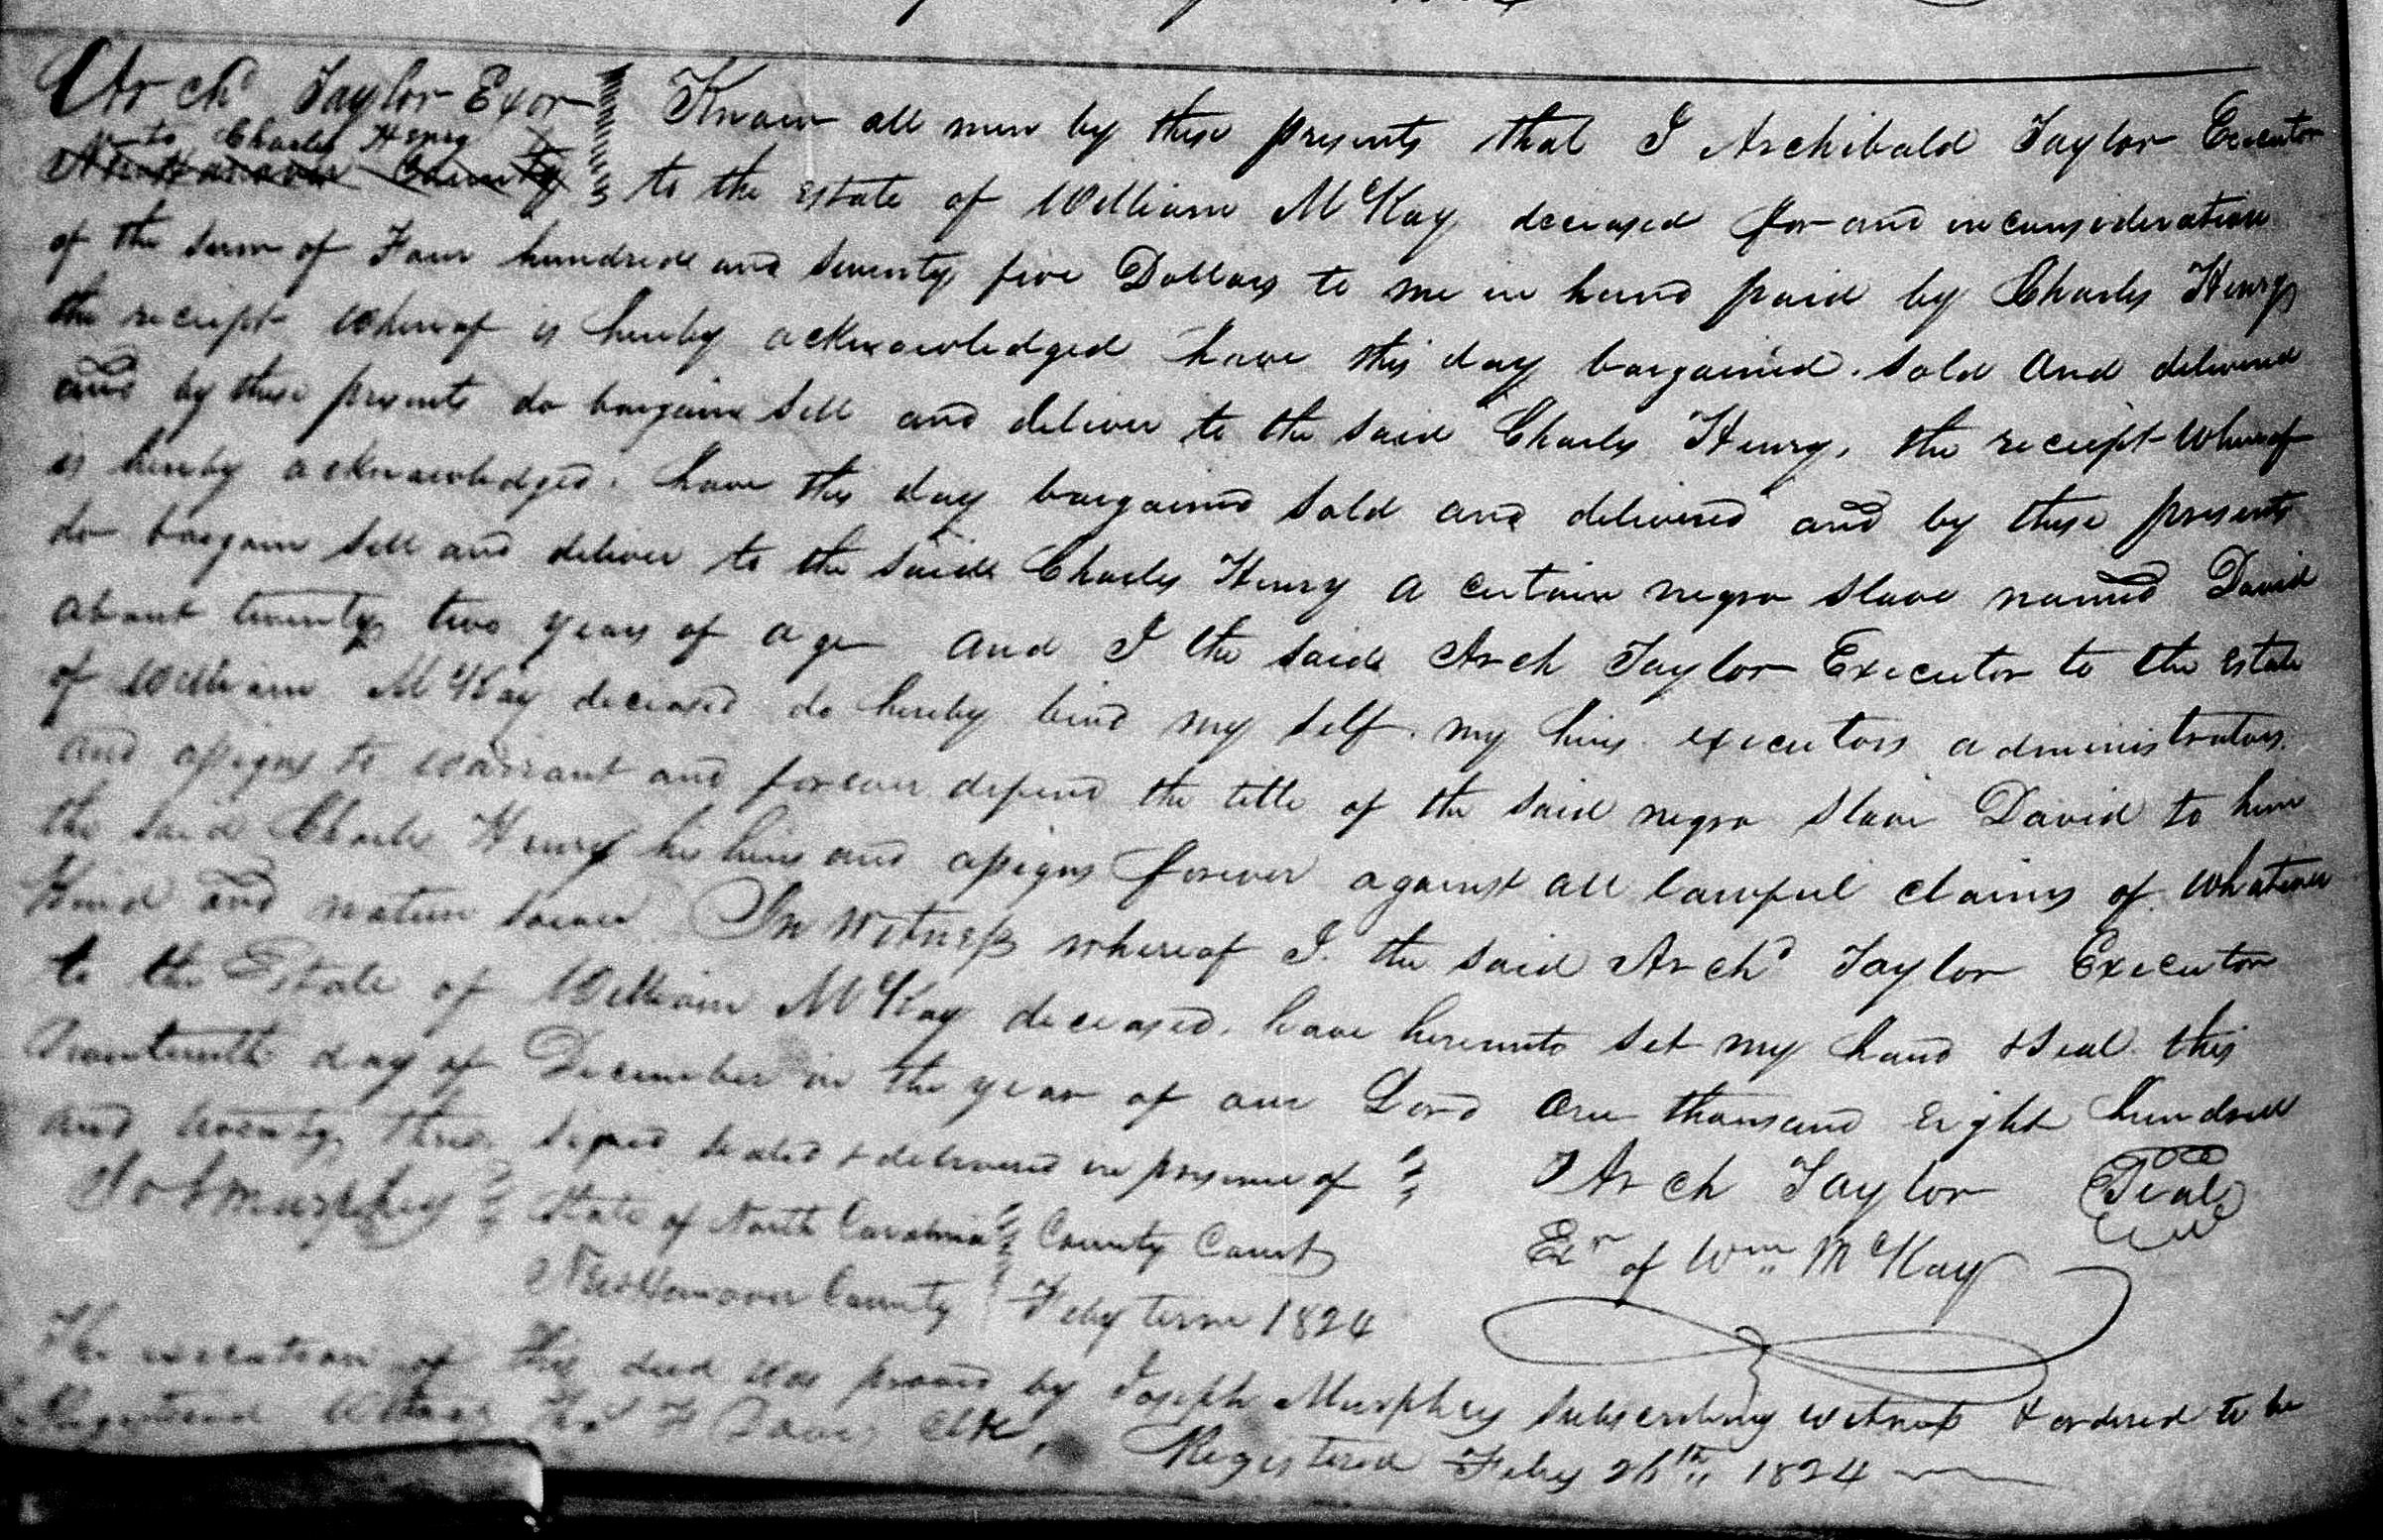 Archd Taylor Exor
to Charles Henry
New Hanover County
Know all men by these presents that I Archibald Taylor Executor
to the estate of William McKay deceased for and in consideration
of the sum of Four hundred and seventy five Dollars to me in hand paid by Charles Henry
the reciept whereof is hereby acknowledged have this day bargained. sold and delivered
and by these presents do bargain sell and deliver to the said Charles Henry, the reciept whereof
is hereby acknowledged. have this day bargained sold and delivered and by these presents
do bargain sell and deliver to the said Charles Henry a certain negro slave named David
about twenty two years of age and I the said Arch Taylor Executor to the estate
of William McKay deceased do hereby bind my self. my heirs. executors administrators.
and assigns to warrant and forever defend the title of the said negro slave David to him
the said Charles Henry his heirs and assigns forever against all lawful claims of whatever
Kind and nature soever In witness whereof I. the said Archd Taylor Executor
to the Estate of William McKay deceased. have hereunto set my hand & Seal. this
Seventeenth day of December in the year of our Lord One thousand eight hundred
and twenty three signed sealed & delivered in presence of Arch Taylor Seal
Jos Murphey State of North Carolina County Court Exr of Wm McKay
New Hanover County Feby term 1824
The execution of this deed was proved by Joseph Murphey subscribing witness & ordered to be
Registered Thos F Davis Clk, Registered Feby 26th 1824